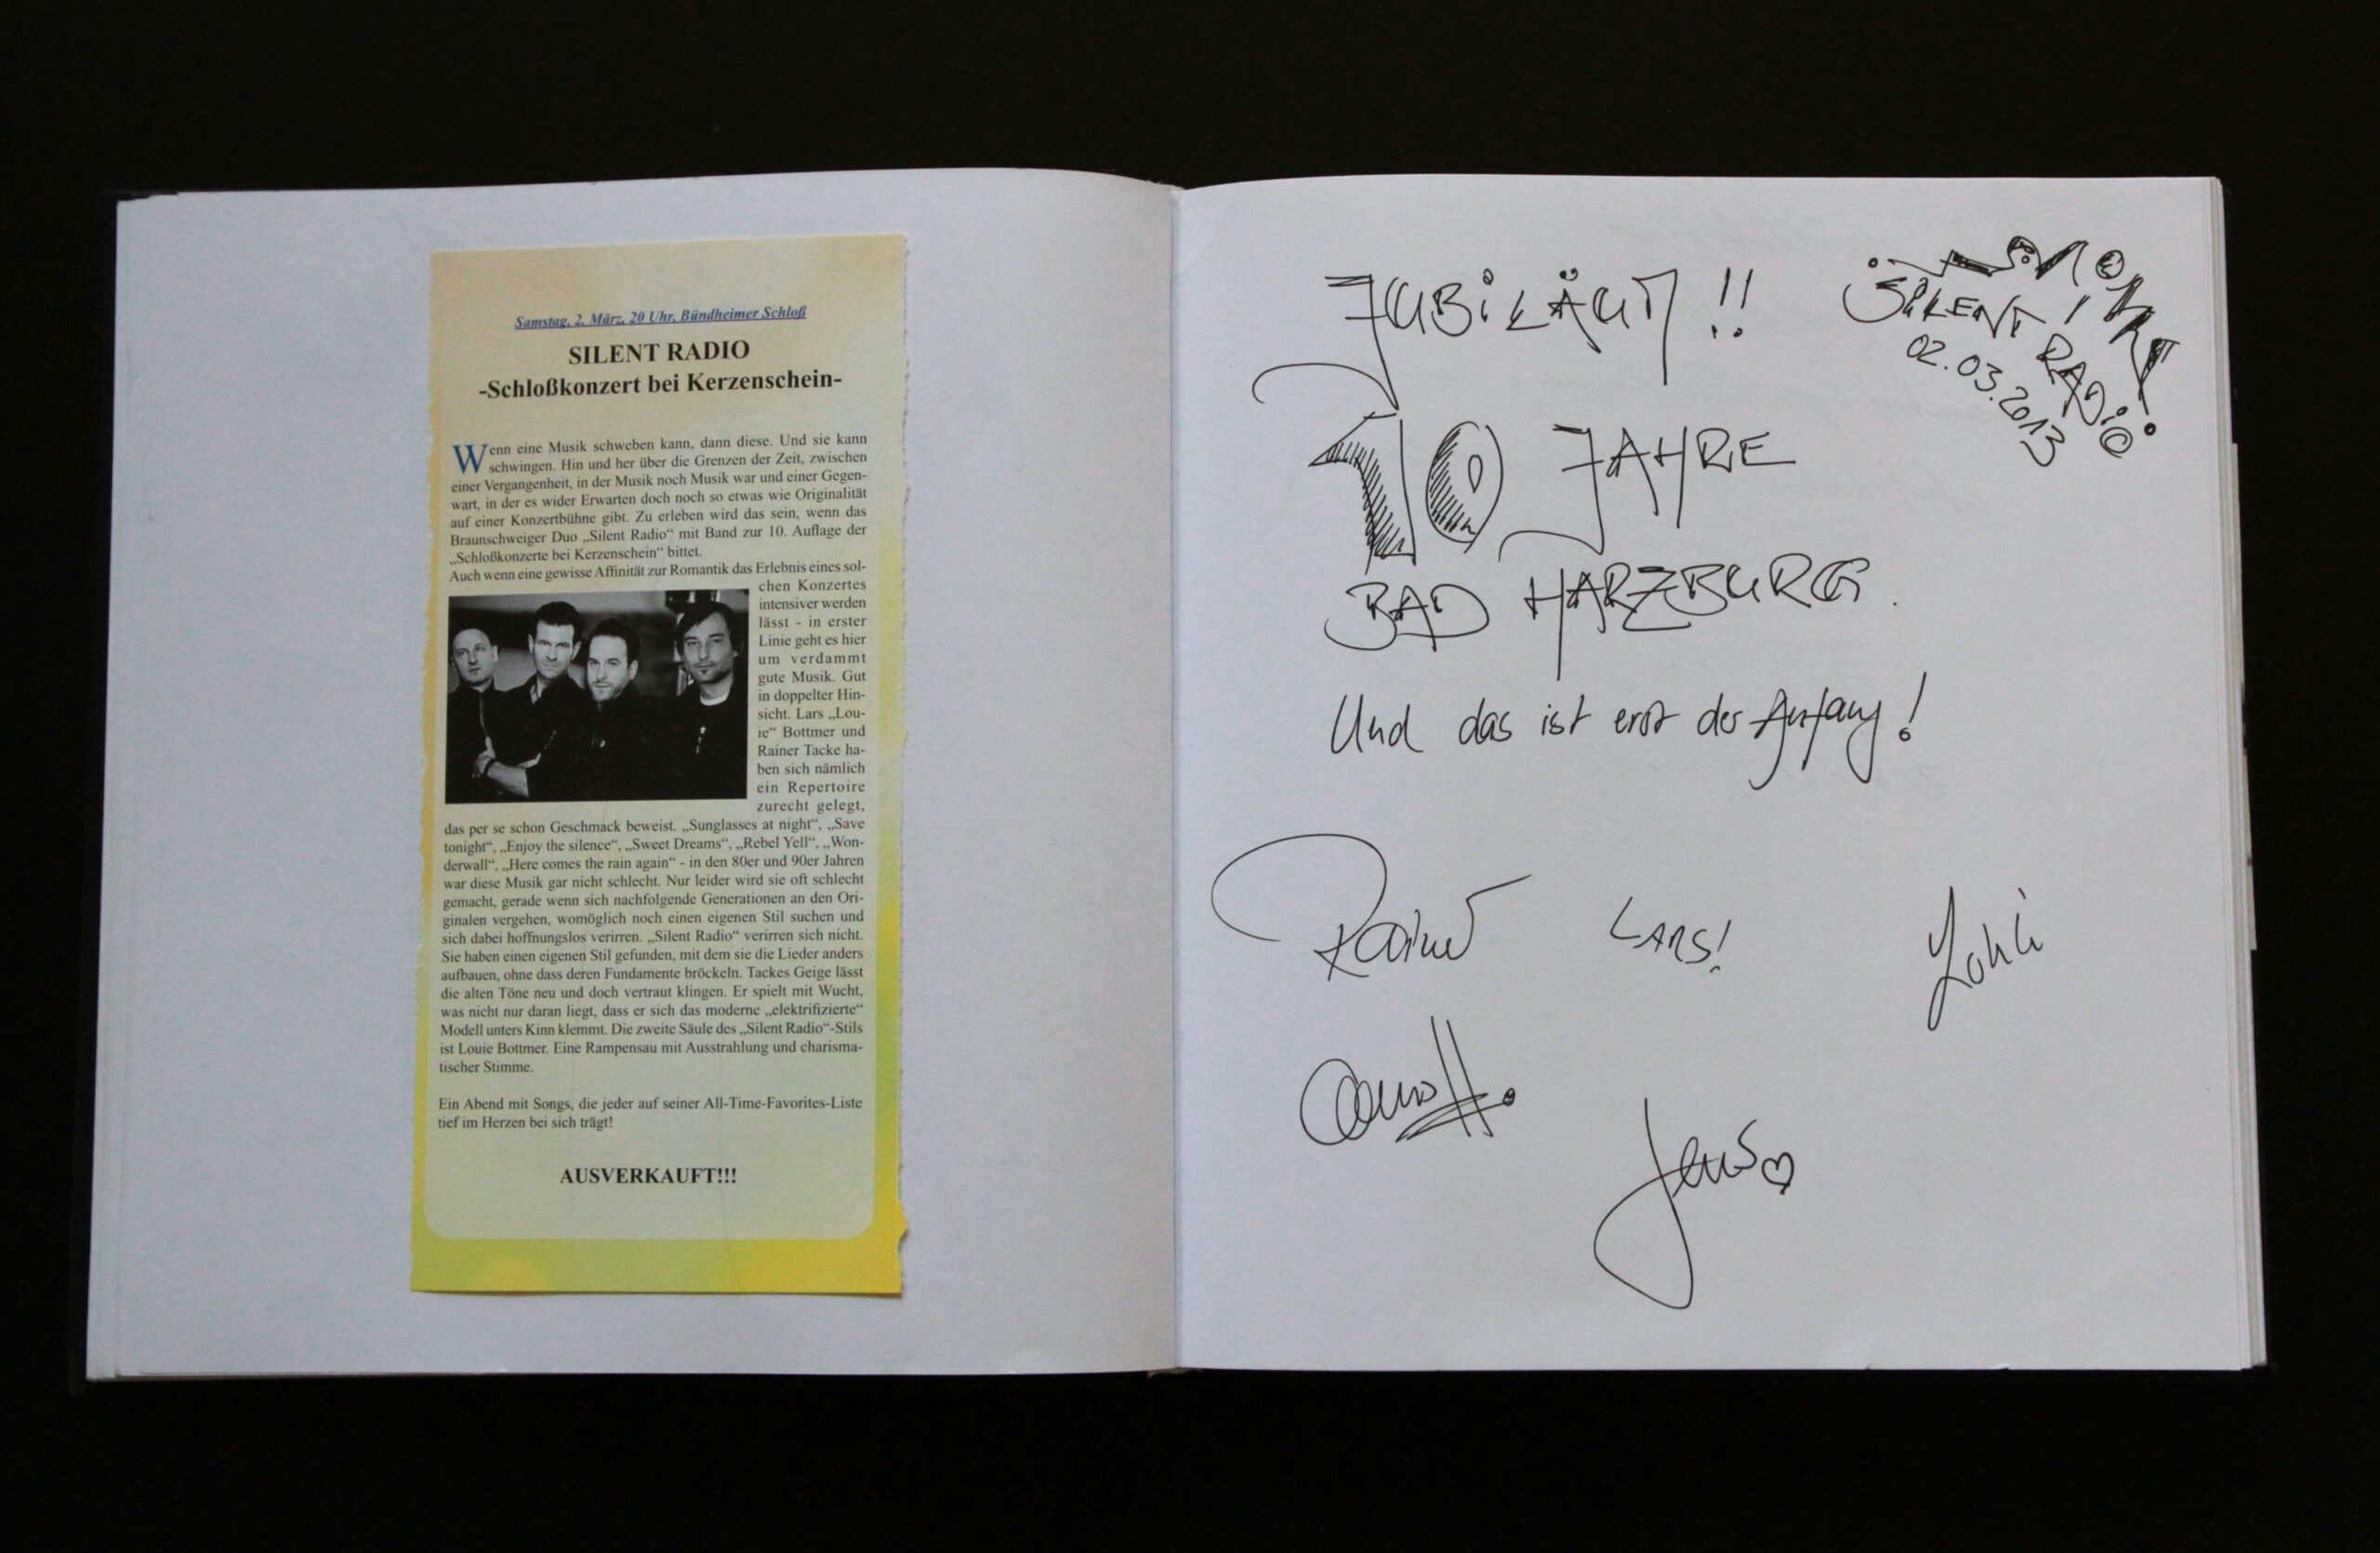 Samstag, 2. März, 20 Uhr, Bündheimer Schloß
SILENT RADIO
-Schloßkonzert bei Kerzenschein-
Wenn eine Musik schweben kann, dann diese. Und sie kann
schwingen. Hin und her über die Grenzen der Zeit, zwischen
einer Vergangenheit, in der Musik noch Musik war und einer Gegen-
wart, in der es wider Erwarten doch noch so etwas wie Originalität
auf einer Konzertbühne gibt. Zu erleben wird das sein, wenn das
Braunschweiger Duo „Silent Radio“ mit Band zur 10. Auflage der
„Schloßkonzerte bei Kerzenschein“ bittet.
Auch wenn eine gewisse Affinität zur Romantik das Erlebnis eines sol-
chen Konzertes
intensiver werden
lässt - in erster
Linie geht es hier
um verdammt
gute Musik. Gut
in doppelter Hin-
sicht. Lars „Lou-
ie“ Bottmer und
Rainer Tacke ha-
ben sich nämlich
ein Repertoire
zurecht gelegt,
das per se schon Geschmack beweist. „Sunglasses at night“, „Save
tonight“, „Enjoy the silence“, „Sweet Dreams“, „Rebel Yell“, „Won-
derwall“, „Here comes the rain again“ - in den 80er und 90er Jahren
war diese Musik gar nicht schlecht. Nur leider wird sie oft schlecht
gemacht, gerade wenn sich nachfolgende Generationen an den Ori-
ginalen vergehen, womöglich noch einen eigenen Stil suchen und
sich dabei hoffnungslos verirren. „Silent Radio“ verirren sich nicht.
Sie haben einen eigenen Stil gefunden, mit dem sie die Lieder anders
aufbauen, ohne dass deren Fundamente bröckeln. Tackes Geige lässt
die alten Töne neu und doch vertraut klingen. Er spielt mit Wucht,
was nicht nur daran liegt, dass er sich das moderne „elektrifizierte“
Modell unters Kinn klemmt. Die zweite Säule des „Silent Radio“-Stils
ist Louie Bottmer. Eine Rampensau mit Ausstrahlung und charisma-
tischer Stimme.
Ein Abend mit Songs, die jeder auf seiner All-Time-Favorites-Liste
tief im Herzen bei sich trägt!
AUSVERKAUFT!!!
JUBILÄUM !!
SILENT RADIO
02.03.2013
10 JAHRE
BAD HARZBURG.
Und das ist erst der Anfang!
Rainer
LARS!
Jens